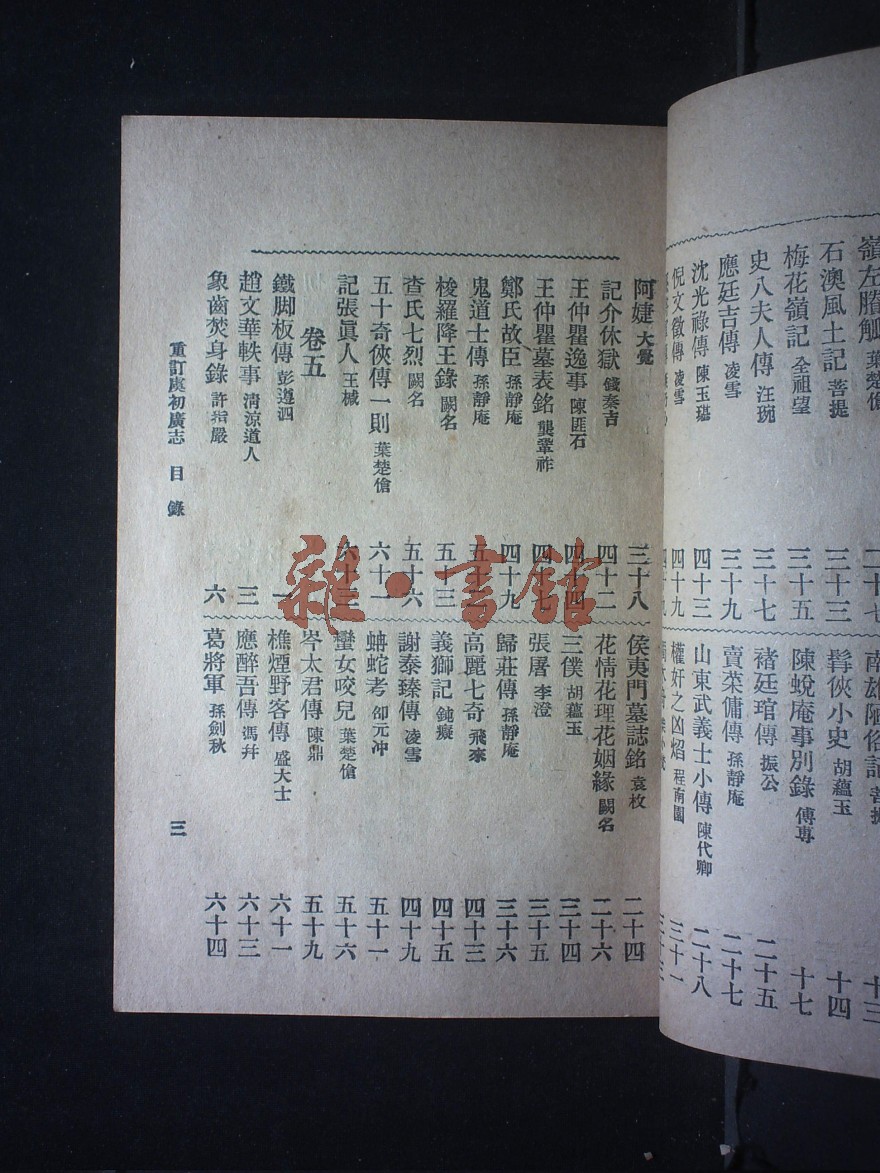 嶺左隮觚 葉楚傖 二十七
石澳風土記 菩提 三十三
梅花嶺記 全祖望 三十五
史八夫人傳 汪琬 三十七
應廷吉傳 凌雪 三十九
沈光祿傳 陳玉璂 四十三
倪文徵傳 凌雪 四十九
南雄陋俗記 菩提 十三
髯俠小史 胡蘊玉 十四
陳蛻庵事別錄 傅尃 十七
褚廷琯傳 振公 二十五
賣菜傭傳 孫靜庵 二十七
山東武義士小傳 陳代卿 二十八
權奸之凶焰 程南園 三十一
阿婕 大覺 三十八
記介休獄 錢泰吉 四十二
王仲瞿逸事 陳匪石 四十四
王仲瞿墓表銘 龔鞏祚 四十七
鄭氏故臣 孫靜庵 四十九
鬼道士傳 孫靜庵 五十二
梭羅降王錄 闕名 五十三
查氏七烈 闕名 五十六
五十奇俠傳一則 葉楚傖 六十一
記張眞人 王棫 六十三
卷五
鐵脚板傳 彭遵泗 一
趙文華軼事 清涼道人 三
象齒焚身錄 許指嚴 六
侯夷門墓誌銘 袁枚 二十四
花情花理花姻緣 闕名 二十六
三僕 胡蘊玉 三十四
張屠 李澄 三十五
歸莊傳 孫靜庵 三十六
高麗七奇 飛來 四十三
義獅記 鈍癡 四十五
謝泰臻傳 凌雪 四十九
蚺蛇考 卻元冲 五十一
蠻女咬兒 葉楚傖 五十六
岑太君傳 陳鼎 五十九
樵煙野客傳 盛大士 六十一
應醉吾傳 馮幵 六十三
葛將軍 孫劍秋 六十四
重訂虞初廣志 目錄 三
雜·書館